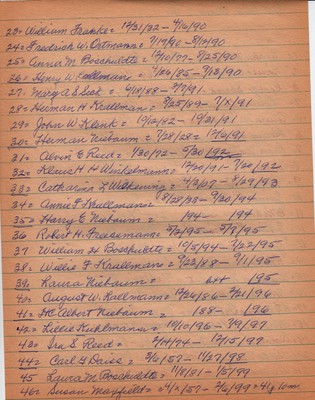 23= William Franke = 12/31/92 - 4/16/90
24= Fredrick W. Ortmann = 7/19/96 - 5/17/90
25= Anna M. Boschulette = 12/10/77 - 8/25/90
26= Henry W. Kallmann = 7/26/85 - 9/13/90
27= Mary A. E. Sock = 6/18/88 - 7/7/91
28= Herman H Krallman = 8/25/89 - 7/X/91
29= John W Klenk = 10/12/82 - 10/21/91
30= Herman Niebaum = 7/28/28 = 12/4/91
31= Alvin E Reed = 1/30/92 - 5/30/92
32= Klaus H H Winkelmann = 12/20/91 - 7/20/92
33= Catharina L Wilkening = 4/2/07 - 8/29/93
34= Annie F Krallmann = 8/28/33 - 9/20/94
35= Harry E Niebaum = 194 - 194
36 Robert H. Friesemann = 5/2/95 - 5/7/95
37 William H Boschulette = 10/5/94 - 7/22/95
38= Willie F Krallmann = 9/23/88 - 9/1/95
39= Laura Niebaum = - 195
40= August W. Kallmann = 12/26/86 - 2/21/96
41= HC Albert Niebaum = 188 - 196
42= Lillie Kuhlmann = 10/10/96 - 7/9/97
43= Ira S. Reed = 2/14/94 - 12/15/97
44= Carl G Daiss = 3/6/57 - 11/27/98
45 Laura M. Boschulette = 11/8/21 - 1/5/99
46= Susan Mayfield = 4/X/57 - 2/6/99 =